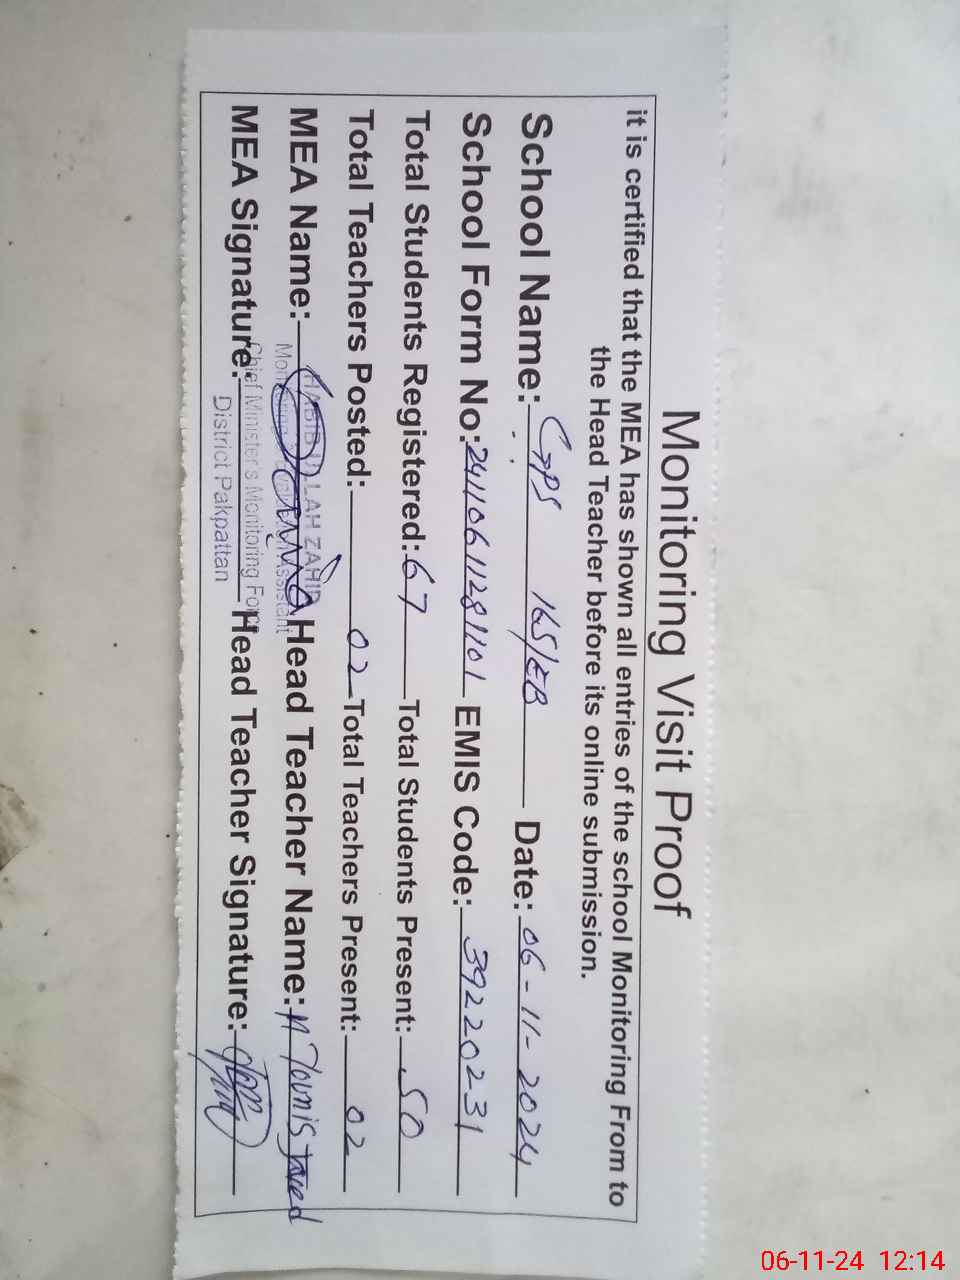 Monitoring Visit Proof
it is certified that the MEA has shown all entries of the school Monitoring From to
the Head Teacher before its online submission.
School Name: GPS 165/EB Date: 06-11-2024
School Form No: 24110611281101 EMIS Code: 39220231
Total Students Registered: 67 Total Students Present: 50
Total Teachers Posted: 02 Total Teachers Present: 02
MEA Name: Head Teacher Name: M Younis Javed
HABIB ULLAH ZAHID
Monitoring & Evaluation Assistant
MEA Signature: Head Teacher Signature:
Chief Minister's Monitoring Force
District Pakpattan
06-11-24 12:14